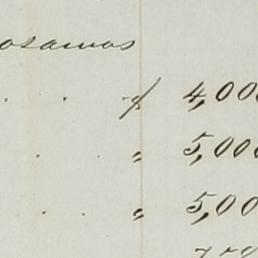 osamos
. . $ 4,000
. „ 5,000
. . „ 5,00